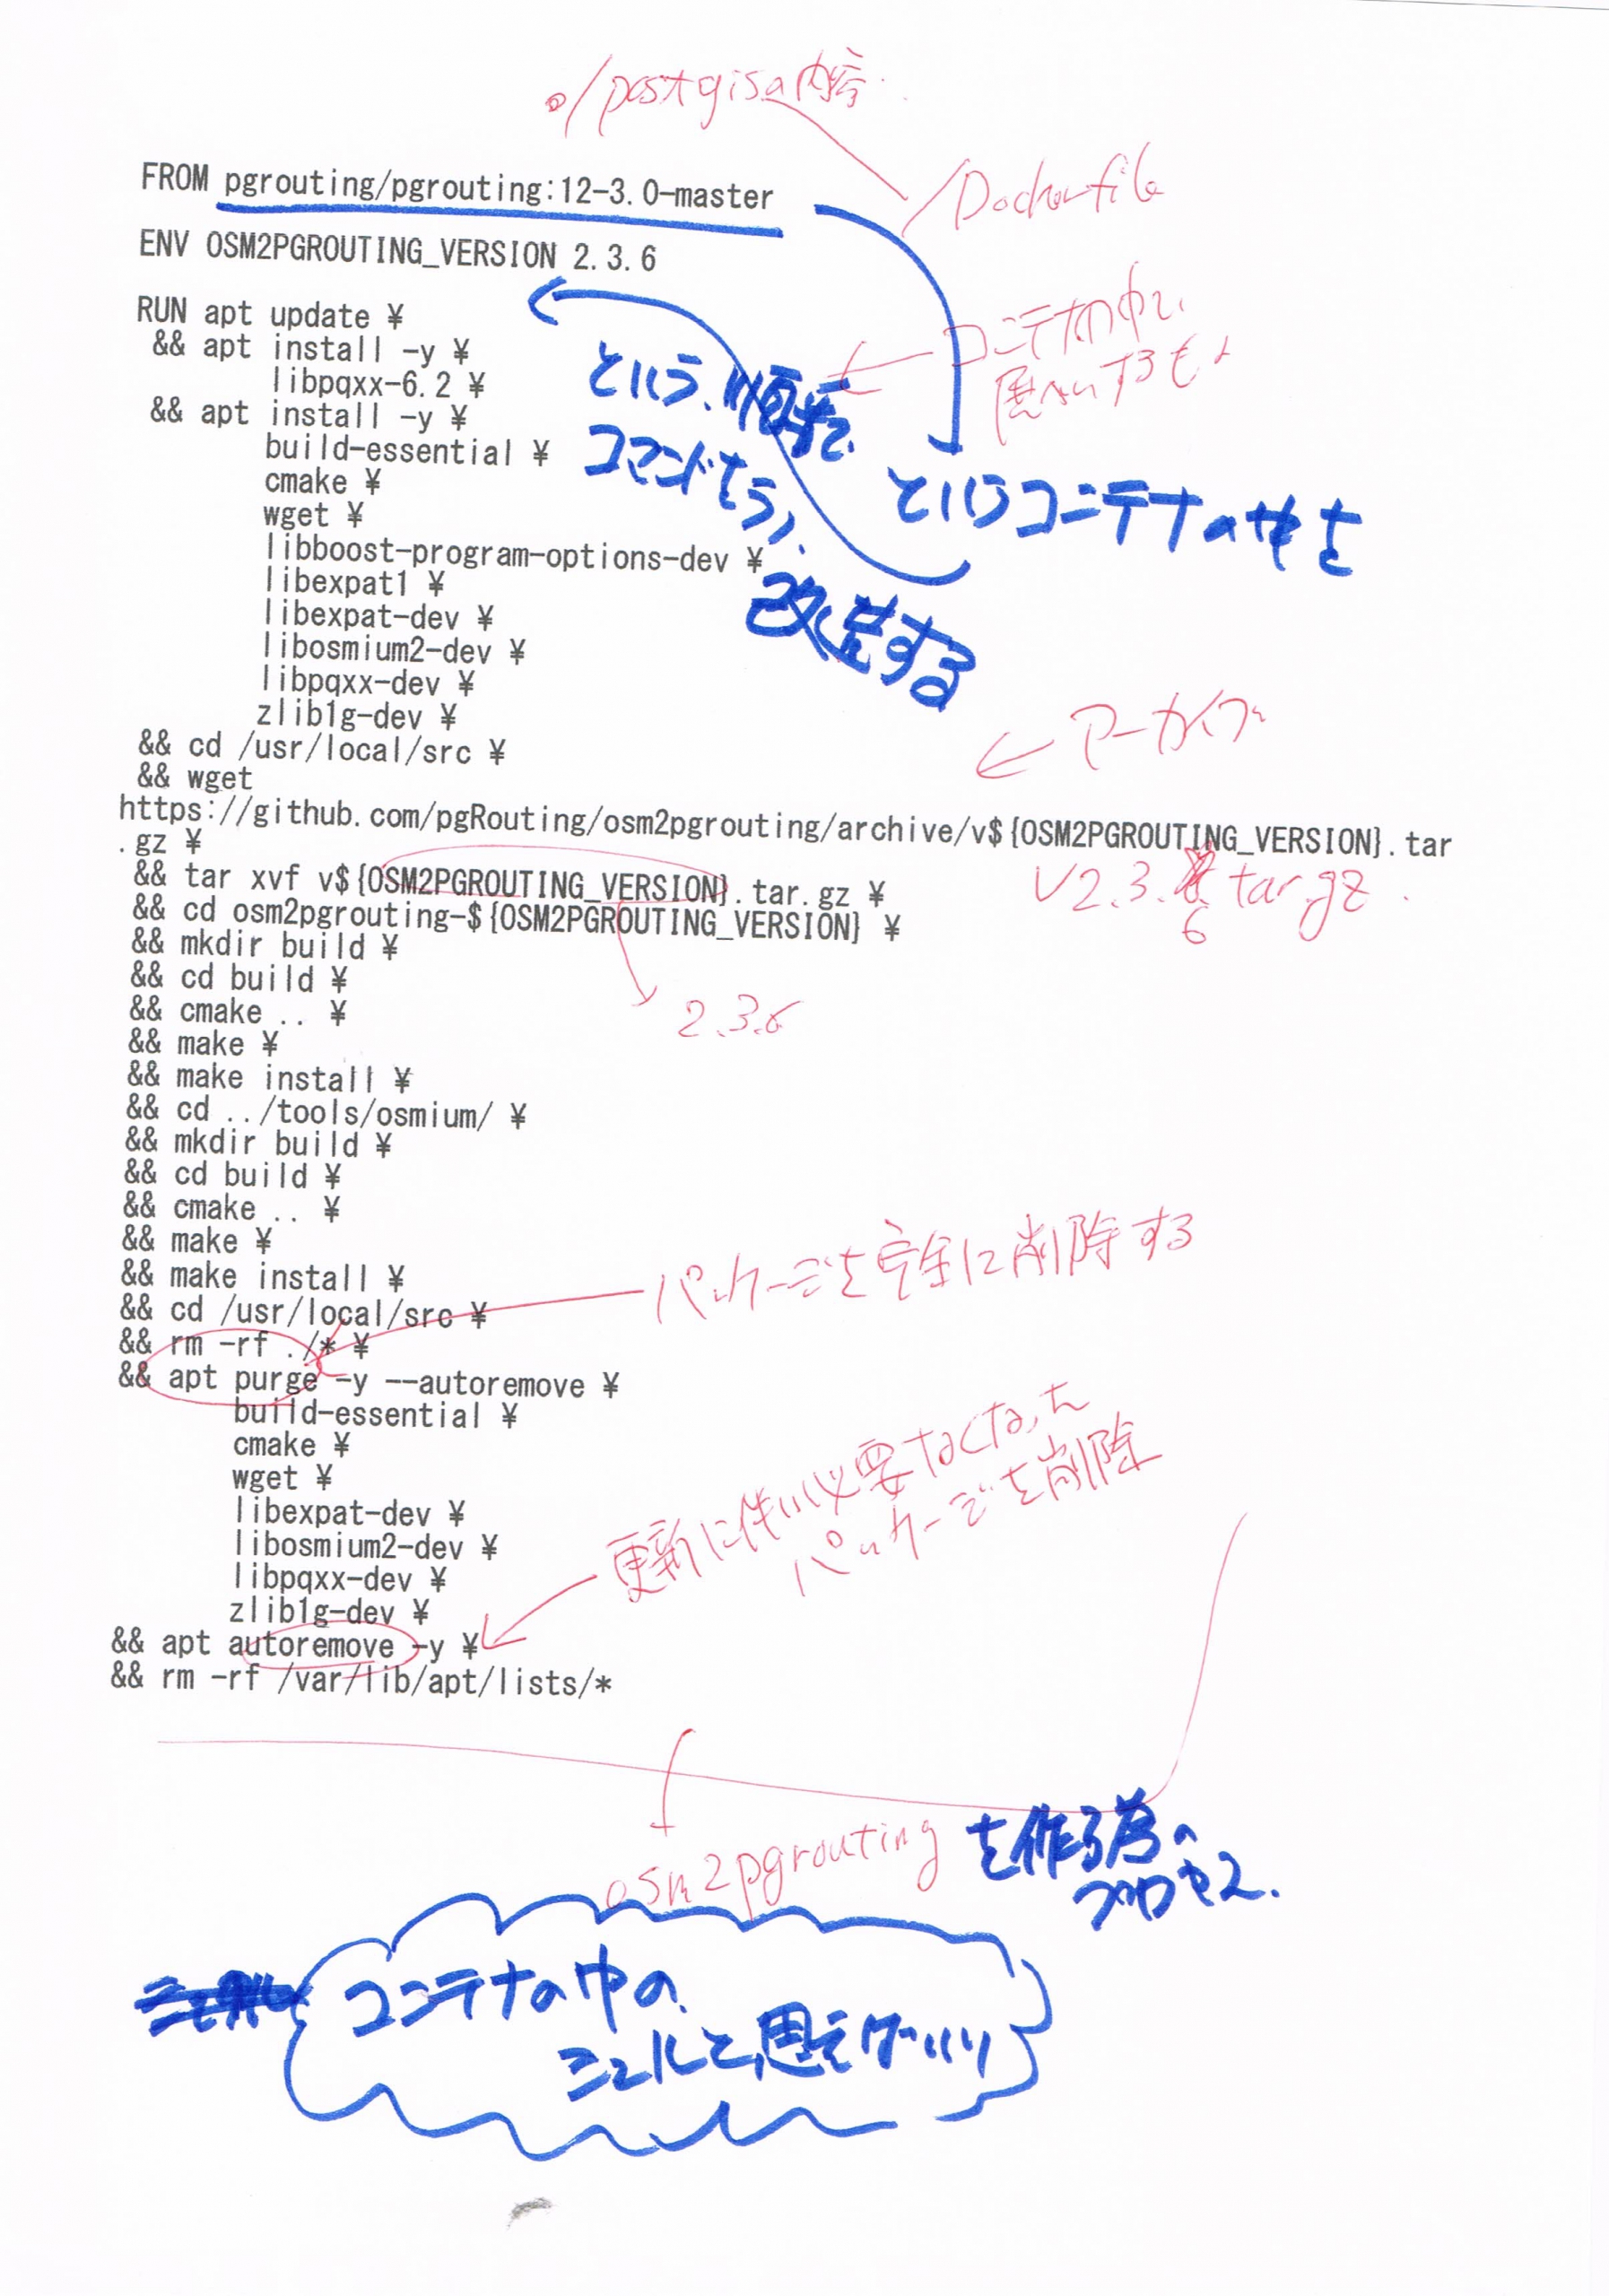 ./postgisの内容
/Dockerfile
FROM pgrouting/pgrouting:12-3.0-master
ENV OSM2PGROUTING_VERSION 2.3.6
RUN apt update ¥
&& apt install -y ¥
libpqxx-6.2 ¥
&& apt install -y ¥
build-essential ¥
cmake ¥
wget ¥
libboost-program-options-dev ¥
libexpat1 ¥
libexpat-dev ¥
libosmium2-dev ¥
libpqxx-dev ¥
zlib1g-dev ¥
コンテナの中に
するもの
という、順番で
コマンドをうい、
というコンテナの中を
改定する
&& cd /usr/local/src ¥
&& wget
アーカイブ
https://github.com/pgRouting/osm2pgrouting/archive/v${OSM2PGROUTING_VERSION}.tar
.gz ¥
&& tar xvf v${OSM2PGROUTING_VERSION}.tar.gz ¥
V2.3.6 tar.gz
&& cd osm2pgrouting-${OSM2PGROUTING_VERSION} ¥
&& mkdir build ¥
&& cd build ¥
&& cmake .. ¥
2.3.6
&& make ¥
&& make install ¥
&& cd ../tools/osmium/ ¥
&& mkdir build ¥
&& cd build ¥
&& cmake .. ¥
&& make ¥
パッケージを完全に削除する
&& make install ¥
&& cd /usr/local/src ¥
&& rm -rf ./* ¥
&& apt purge -y --autoremove ¥
build-essential ¥
cmake ¥
wget ¥
libexpat-dev ¥
libosmium2-dev ¥
libpqxx-dev ¥
zlib1g-dev ¥
更新に伴い必要なくなった
パッケージを削除
&& apt autoremove -y ¥
&& rm -rf /var/lib/apt/lists/*
osm2pgrouting を作る為の
プロセス.
コンテナの中の
シェルと思えばいい